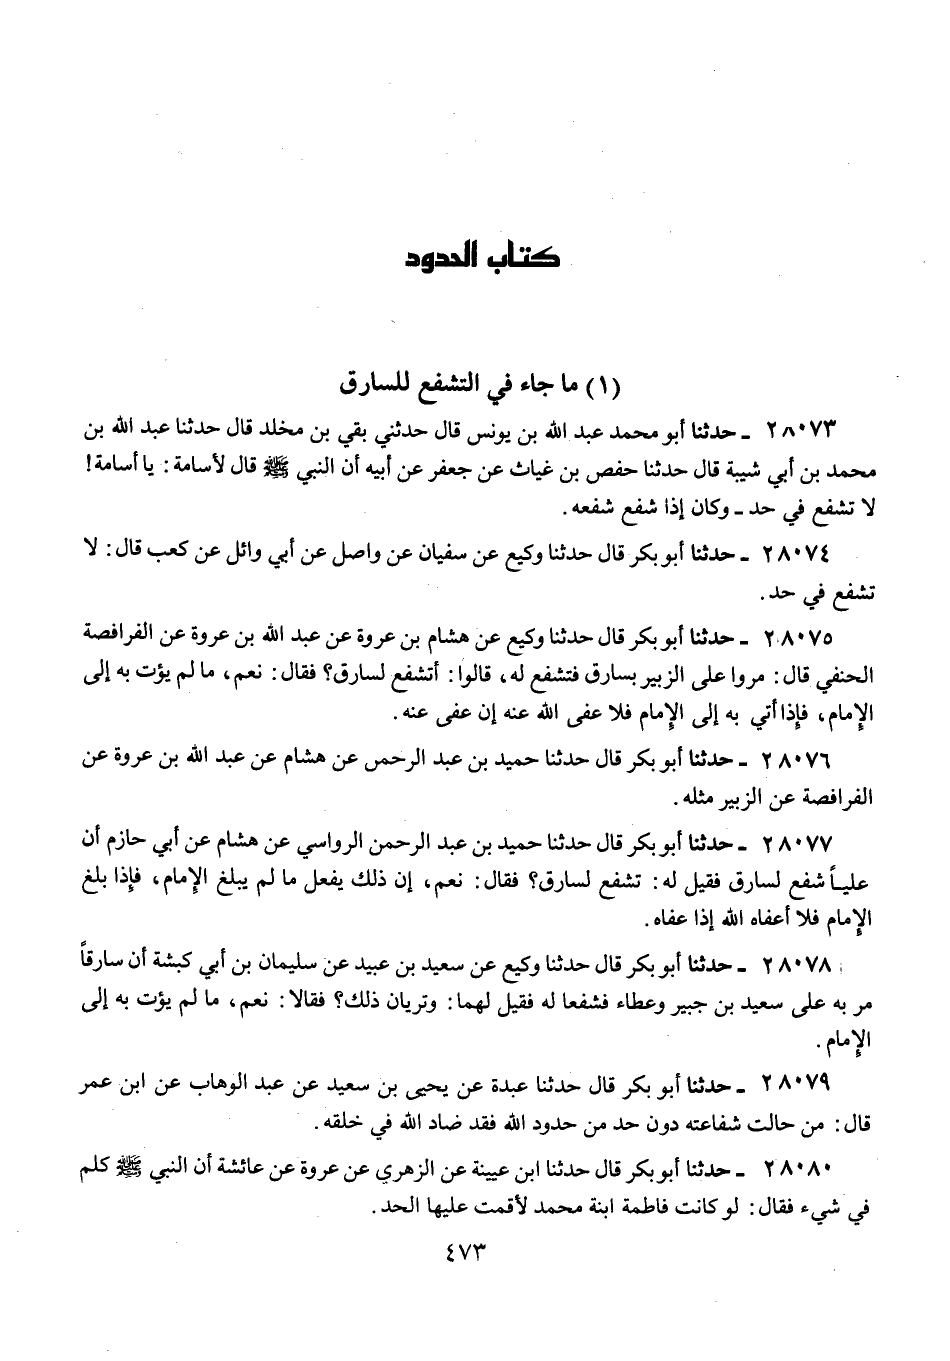 كتاب الحدود
(١) ما جاء في التشفع للسارق
٢٨٠٧٣ ـ حدثنا أبو محمد عبد الله بن يونس قال حدثني بقي بن مخلد قال حدثنا عبد الله بن
محمد بن أبي شيبة قال حدثنا حفص بن غياث عن جعفر عن أبيه أن النبي ﷺ قال لأسامة: يا أسامة!
لا تشفع في حد ـ وكان إذا شفع شفعه.
٢٨٠٧٤ ـ حدثنا أبو بكر قال حدثنا وكيع عن سفيان عن واصل عن أبي وائل عن كعب قال: لا
تشفع في حد.
٢٨٠٧٥ ـ حدثنا أبو بكر قال حدثنا وكيع عن هشام بن عروة عن عبد الله بن عروة عن الفرافصة
الحنفي قال: مروا على الزبير بسارق فتشفع له، قالوا: أتشفع لسارق؟ فقال: نعم، ما لم يؤت به إلى
الإمام، فإذا أتي به إلى الإمام فلا عفى الله عنه إن عفى عنه.
٢٨٠٧٦ ـ حدثنا أبو بكر قال حدثنا حميد بن عبد الرحمن عن هشام عن عبد الله بن عروة عن
الفرافصة عن الزبير مثله.
٢٨٠٧٧ ـ حدثنا أبو بكر قال حدثنا حميد بن عبد الرحمن الرواسي عن هشام عن أبي حازم أن
علياً شفع لسارق فقيل له: تشفع لسارق؟ فقال: نعم، إن ذلك يفعل ما لم يبلغ الإمام، فإذا بلغ
الإمام فلا أعفاه الله إذا عفاه.
٢٨٠٧٨ ـ حدثنا أبو بكر قال حدثنا وكيع عن سعيد بن عبيد عن سليمان بن أبي كبشة أن سارقاً
مر به على سعيد بن جبير وعطاء فشفعا له فقيل لهما: وتريان ذلك؟ فقالا: نعم، ما لم يؤت به إلى
الإمام.
٢٨٠٧٩ ـ حدثنا أبو بكر قال حدثنا عبدة عن يحيى بن سعيد عن عبد الوهاب عن ابن عمر
قال: من حالت شفاعته دون حد من حدود الله فقد ضاد الله في خلقه.
٢٨٠٨٠ ـ حدثنا أبو بكر قال حدثنا ابن عيينة عن الزهري عن عروة عن عائشة أن النبي ﷺ كلم
في شيء فقال: لو كانت فاطمة ابنة محمد لأقمت عليها الحد.
٤٧٣